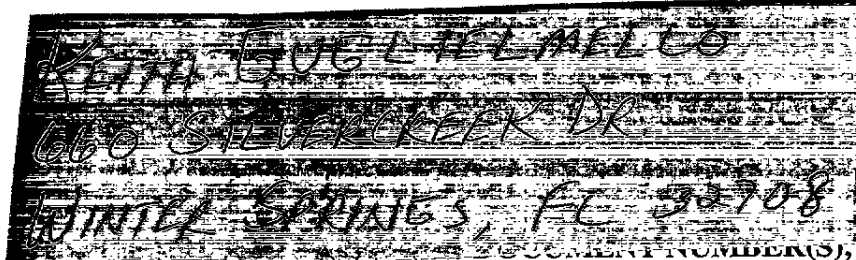 KEITH GUGLIELMELLO
660 SILVERCREEK DR.
WINTER SPRINGS, FL 32708
DOCUMENT NUMBER(S),